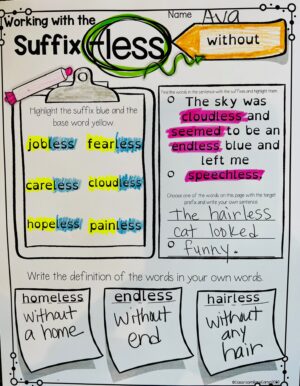 Working with the
Name Ava
Suffix -less
without
Highlight the suffix blue and the
base word yellow.
jobless fearless
careless cloudless
hopeless painless
Find the words in the sentence with the suffixes and highlight them.
The sky was
cloudless and
seemed to be an
endless blue and
left me
speechless.
Choose one of the words on this page with the target
prefix and write your own sentence.
The hairless
cat looked
funny.
Write the definition of the words in your own words.
homeless
without
a home
endless
without
end
hairless
without
any
hair